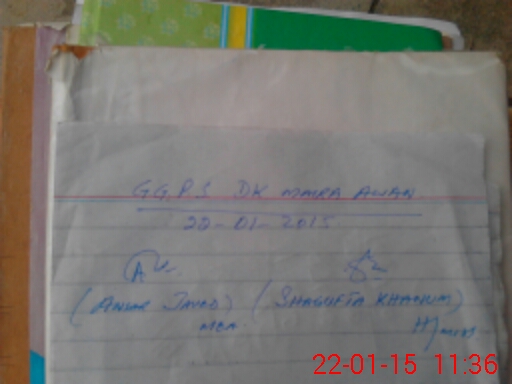 GGPS DK MAIRA AWAN
20-01-2015
(ANSAR JAVED) (SHAGUFTA KHANUM)
MEA H/MISS
22-01-15 11:36